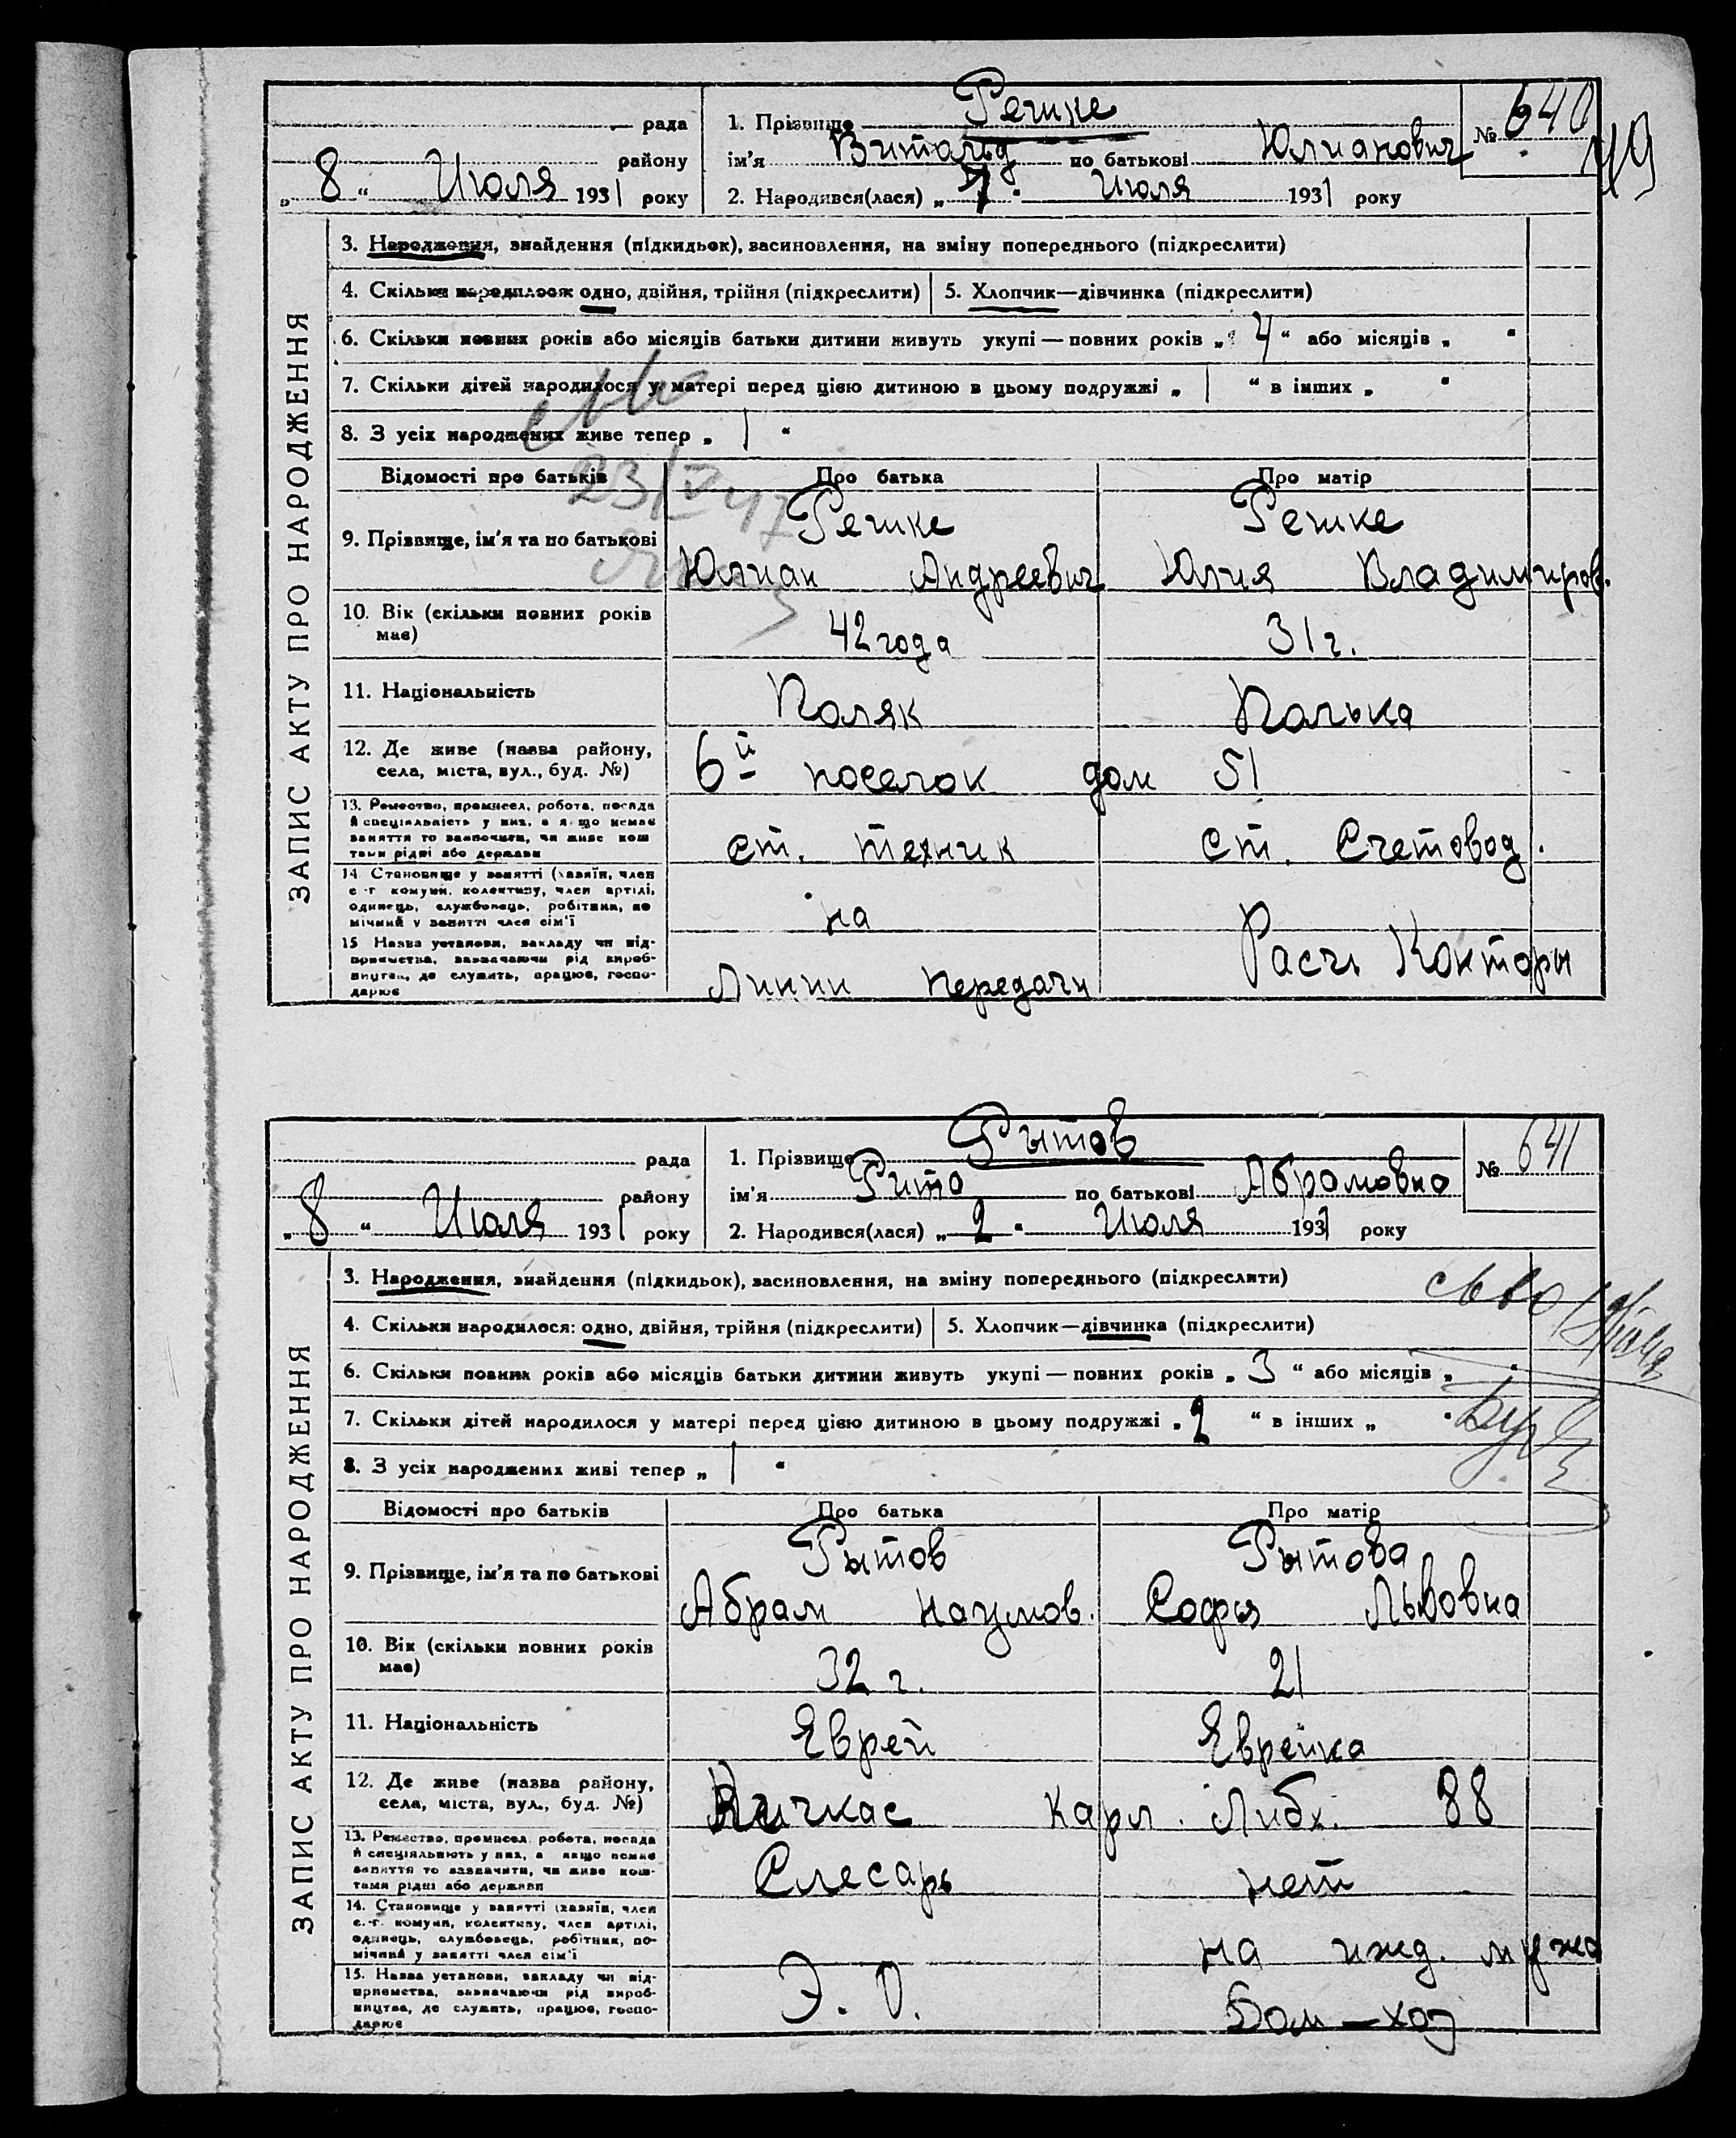 Решке
рада 1. Прізвище № 640
49
району ім'я Витольд по батькові Юлианович
„8“ Июля 1931 року 2. Народився(лася) „7“ Июля 1931 року
ЗАПИС АКТУ ПРО НАРОДЖЕННЯ
3. Народження, знайдення (підкидьок), засиновлення, на зміну попереднього (підкреслити)
4. Скільки народилося: одно, двійня, трійня (підкреслити) 5. Хлопчик—дівчинка (підкреслити)
6. Скільки повних років або місяців батьки дитини живуть укупі — повних років „4“ або місяців „ “
7. Скільки дітей народилося у матері перед цією дитиною в цьому подружжі „1“ в інших „ “
8. З усіх народжених живе тепер „1“
23/V 47
Відомості про батьків Про батька Про матір
9. Прізвище, ім'я та по батькові Решке Решке
Юлиан Андреевич Юлия Владимиров.
10. Вік (скільки повних років має) 42 года 31 г.
11. Національність Поляк Полька
12. Де живе (назва району, села, міста, вул., буд. №) 6й поселок дом 51
13. Ремество, промисел, робота, посада й спеціяльність у них, а якщо немає заняття то зазначити, чи живе коштами рідні або держави
ст. техник ст. Счетовод.
14. Становище у занятті (хазяїн, член с.-г. комуни, колективу, член артілі, одинець, службовець, робітник, помічний у занятті член сім'ї
на
15. Назва установи, закладу чи підприємства, зазначаючи рід виробництва, де служить, працює, господарює
Линии передачи Расч. Конторы
Рытов
рада 1. Прізвище № 641
району ім'я Рита по батькові Абрамовна
„8“ Июля 1931 року 2. Народився(лася) „2“ Июля 1931 року
ЗАПИС АКТУ ПРО НАРОДЖЕННЯ
3. Народження, знайдення (підкидьок), засиновлення, на зміну попереднього (підкреслити)
4. Скільки народилося: одно, двійня, трійня (підкреслити) 5. Хлопчик—дівчинка (підкреслити)
6. Скільки повних років або місяців батьки дитини живуть укупі — повних років „3“ або місяців „ “
7. Скільки дітей народилося у матері перед цією дитиною в цьому подружжі „2“ в інших „ “
8. З усіх народжених живі тепер „1“
Відомості про батьків Про батька Про матір
9. Прізвище, ім'я та по батькові Рытов Рытова
Абрам Наумов. Софья Львовна
10. Вік (скільки повних років має) 32 г. 21
11. Національність Еврей Еврейка
12. Де живе (назва району, села, міста, вул., буд. №) Кичкас Карл. Либх. 88
13. Ремество, промисел, робота, посада й спеціяльність у них, а якщо немає заняття то зазначити, чи живе коштами рідні або держави
Слесарь нет
14. Становище у занятті (хазяїн, член с.-г. комуни, колективу, член артілі, одинець, службовець, робітник, помічний у занятті член сім'ї
на ижд. мужа
15. Назва установи, закладу чи підприємства, зазначаючи рід виробництва, де служить, працює, господарює
Э. О. Дом—хоз